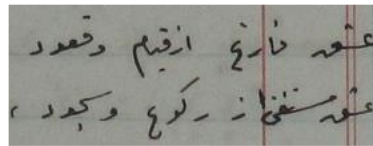 عشق فارغ از قیام و قعود
عشق مستغنی از رکوع و سجود،